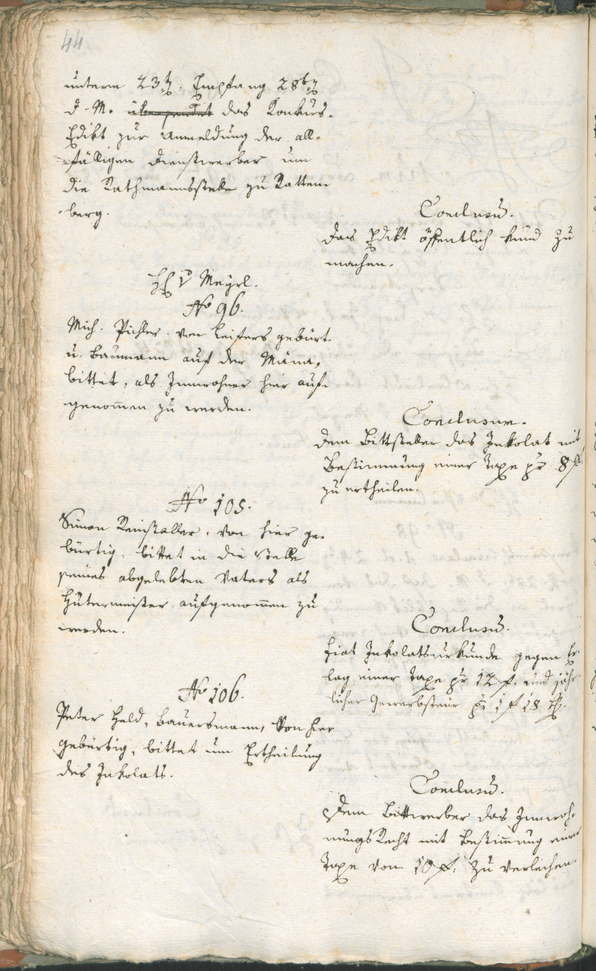 44.
unterm 23t, Empfang 28t
d. M. das Konkurs-
Edikt zur Anmeldung der all-
fälligen Dienstwerber um
die Rathmannsstelle zu Ratten-
berg.
Conclusum.
das Edikt öffentlich kund zu
machen.
H v Mayrl.
No 96.
Mich. Pichler, von Leifers gebürt.
u. Baumann auf der
bittet, als Innwohner hier auf-
genommen zu werden.
Conclusum.
dem Bittsteller das Inkolat mit
Bestimmung einer Taxe pr 8 f
zu ertheilen.
No 105.
Simon Ramstaller, von hier ge-
bürtig, bittet in die Stelle
seines abgelebten Vaters als
Hutermeister aufgenommen zu
werden.
Conclusum.
fiat Inkolatsurkunde gegen Er-
lag einer Taxe pr 12 f. und jähr-
licher Gewerbsteuer pr 1 f 18 x.
No 106.
Peter Held, Bauersmann, von hier
gebürtig, bittet um Ertheilung
des Inkolats.
Conclusum.
Dem Bittwerber das Innwoh-
nungsRecht mit Bestimmung einer
Taxe von 10 f. zu verleihen.